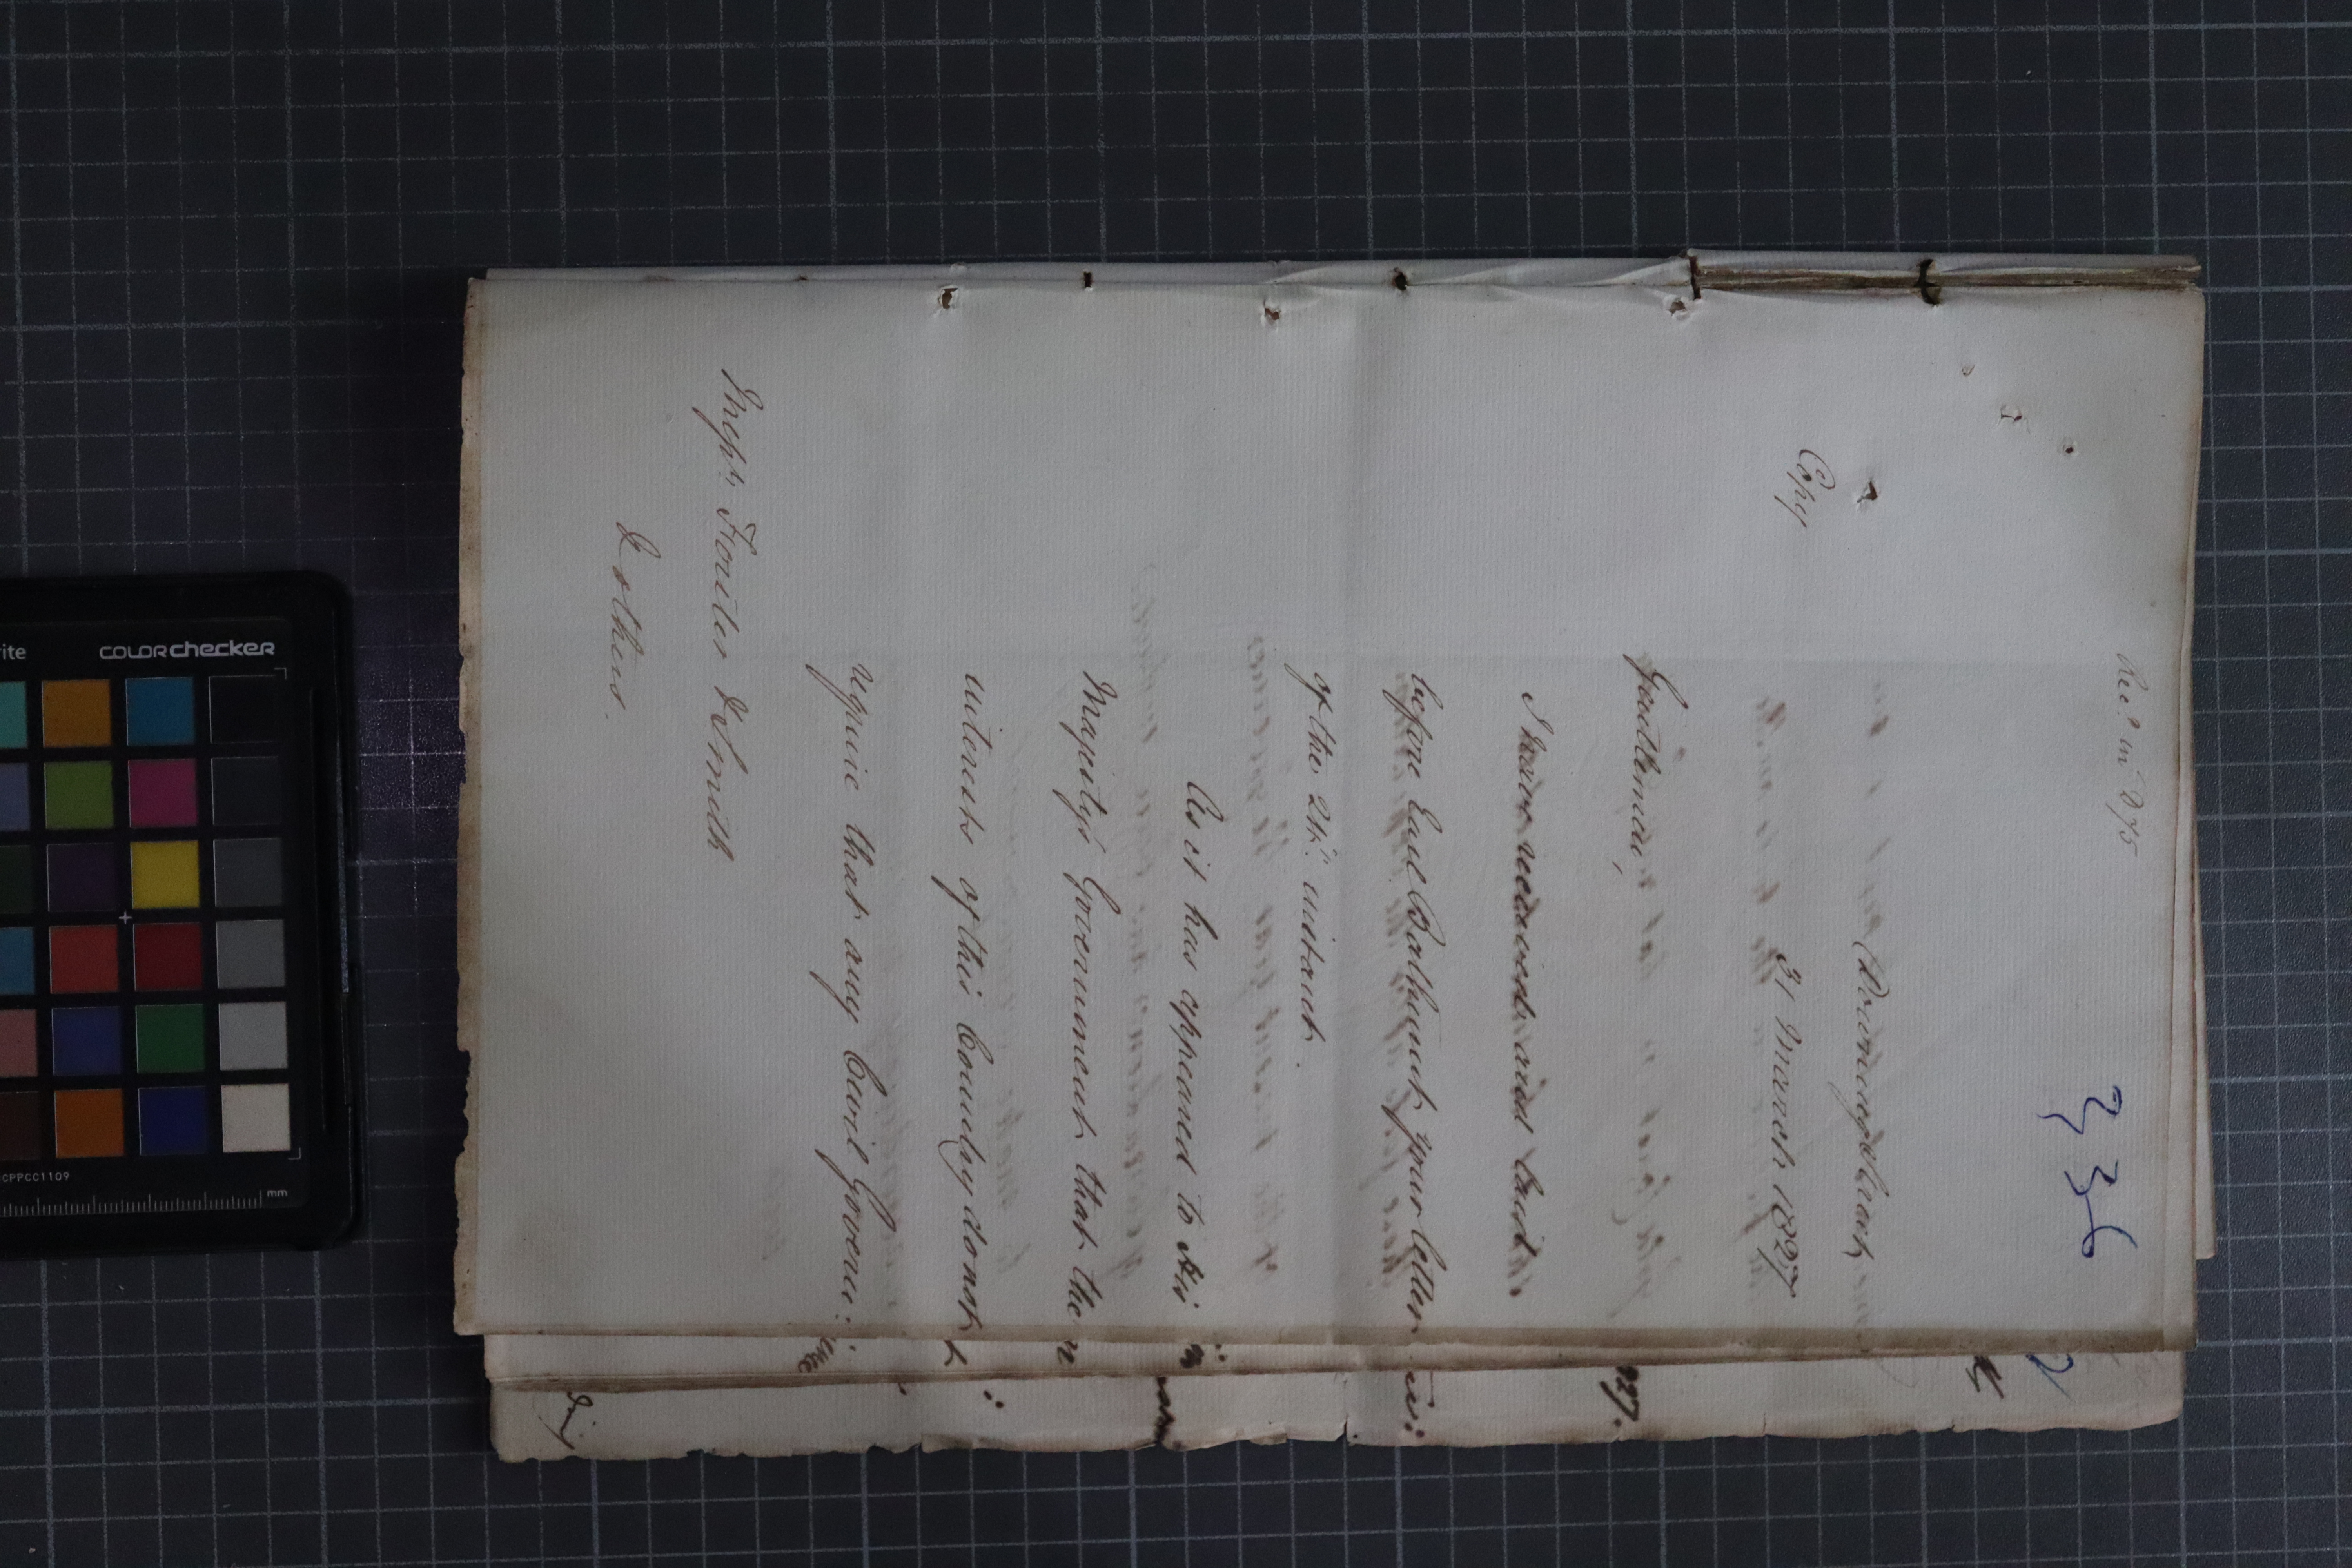 Rec.d in 2/75
336
Downing Street
31 March 1827
Copy
Gentlemen,
I have received and laid
before Earl Bathurst, your letter
of the 24th. instant.
As it has appeared to His
Majesty's Government that the
interests of this Country do not
require that any Civil Govern:
Mess.rs Forster & Smith
& others.
827.
colorchecker
CPPCC1109
mm